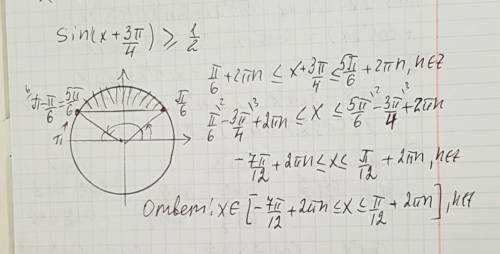 sin(x + 3π/4) ≥ 1/2
π - π/6 = 5π/6
π/6
π
π/6 + 2πn ≤ x + 3π/4 ≤ 5π/6 + 2πn, n∈Z
π/6 ² - 3π/4 ³ + 2πn ≤ x ≤ 5π/6 ² - 3π/4 ³ + 2πn
- 7π/12 + 2πn ≤ x ≤ π/12 + 2πn, n∈Z
Ответ: x∈[-7π/12 + 2πn ≤ x ≤ π/12 + 2πn], n∈Z